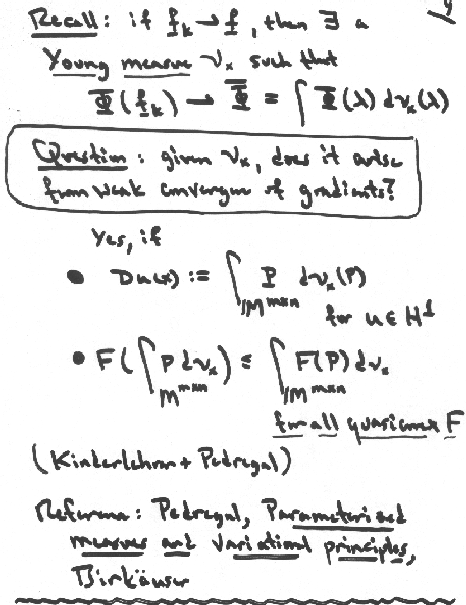 4
Recall: if f_k ⇀ f, then ∃ a
Young measure ν_x such that
Φ(f_k) ⇀ Φ̅ = ∫ Φ(λ) dν_x(λ)
Question: given ν_x, does it arise
from weak convergence of gradients?
Yes, if
• Du(x) := ∫_{𝕄^{m×n}} P dν_x(P)
for u ∈ H^1
• F(∫_{𝕄^{m×n}} P dν_x) ≤ ∫_{𝕄^{m×n}} F(P) dν_x
for all quasiconvex F
(Kinderlehrer + Pedregal)
Reference: Pedregal, Parameterized
measures and variational principles,
Birkäuser